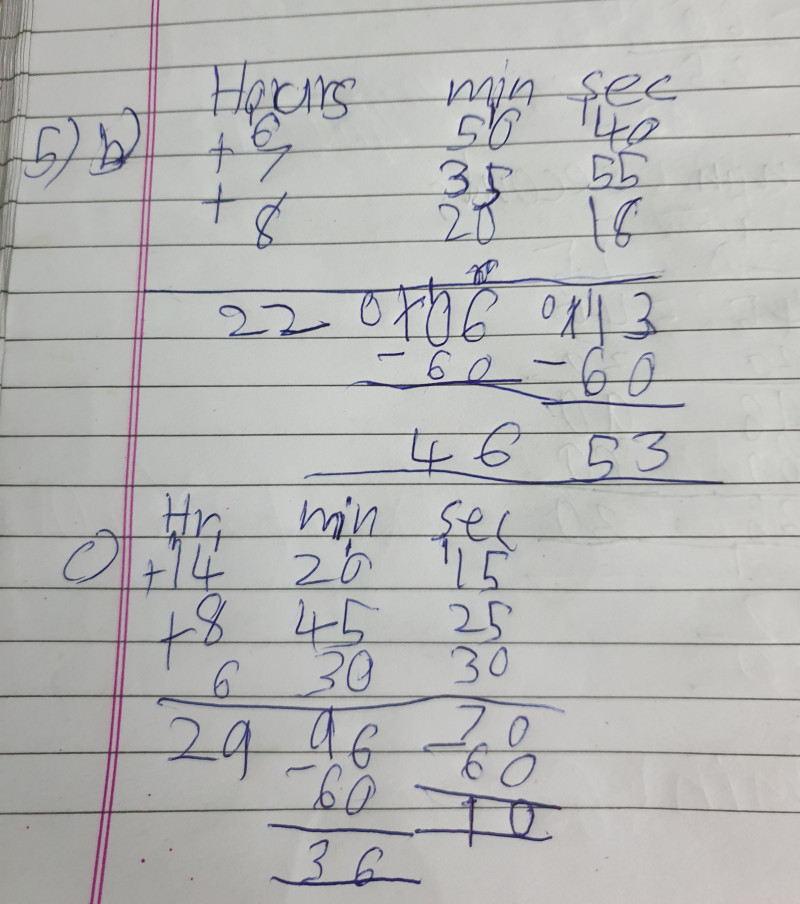 Hours min sec
5) b) 6 50 40
+ 7 35 55
+ 8 20 18
22 0 106 0 113
- 60 - 60
46 53
Hr min sec
c) +14 20 15
+8 45 25
6 30 30
29 96 70
-60 -60
10
36